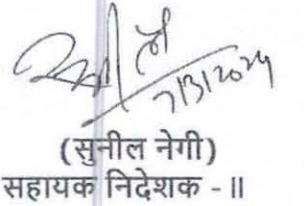 7/3/2024
(सुनील नेगी)
सहायक निदेशक - II